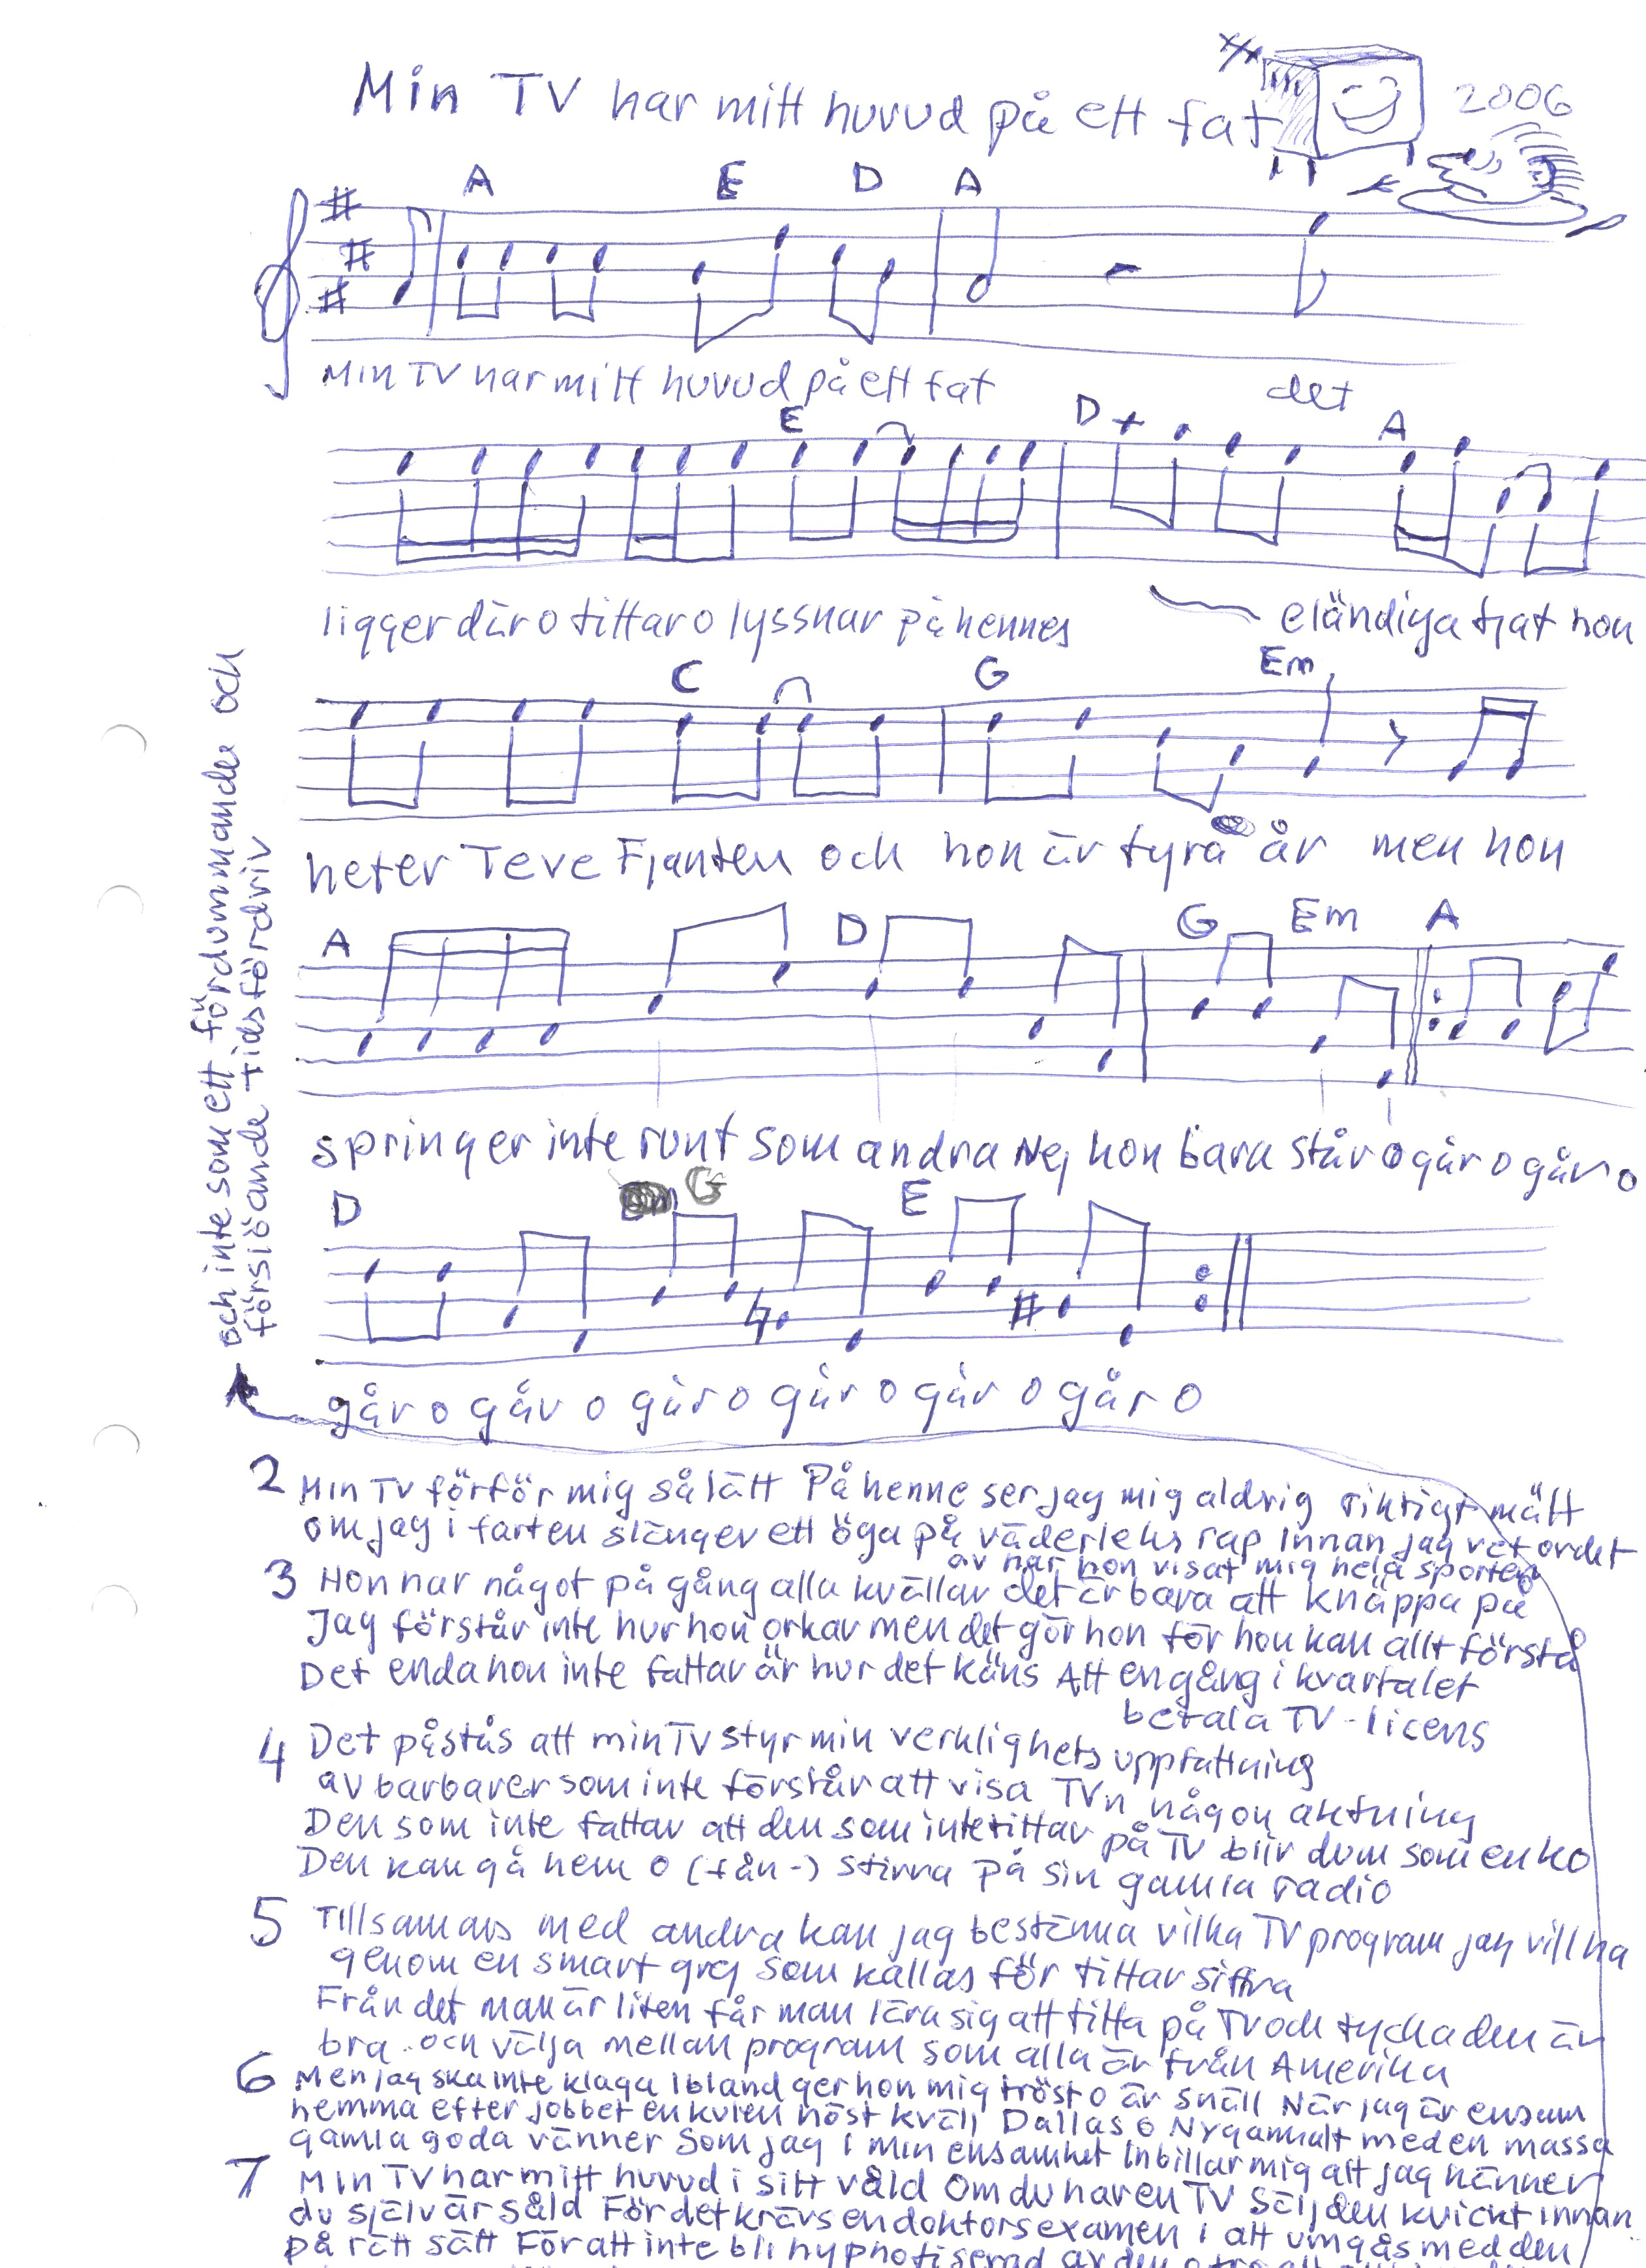 Min TV har mitt huvud på ett fat 2006
A E D A
Min TV har mitt huvud på ett fat det
E D A
ligger där o tittar o lyssnar på hennes eländiga tjat hon
C G Em
heter Teve Fjanten och hon är fyra år men hon
A D G Em A
springer inte runt som andra Nej hon bara står o går o går o
D G E
går o går o går o går o går o går o
och inte som ett fördummande och
försiöande tidsfördriv
2 Min TV förför mig så lätt På henne ser jag mig aldrig riktigt mätt
om jag i farten slänger ett öga på väderleks rap innan jag vet ordet
av har hon visat mig hela sporten
3 Hon har något på gång alla kvällar det är bara att knäppa på
Jag förstår inte hur hon orkar men det gör hon för hon kan allt förstå
Det enda hon inte fattar är hur det käns Att en gång i kvartalet
betala TV-licens
4 Det påstås att min TV styr min verklighets uppfattning
av barbarer som inte förstår att visa TVn någon aktning
Den som inte fattar att den som inte tittar på TV blir dum som en ko
Den kan gå hem o (fån-) stirra på sin gamla radio
5 Tillsammans med andra kan jag bestämma vilka TV program jag vill ha
genom en smart grej som kallas för tittar siffra
Från det man är liten får man lära sig att titta på TV och tycka den är
bra och välja mellan program som alla är från Amerika
6 Men jag ska inte klaga Ibland ger hon mig tröst o är snäll När jag är ensam
hemma efter jobbet en kulen höst kväll Dallas o Nygammalt med en massa
gamla goda vänner Som jag i min ensamhet Inbillar mig att jag känner
7 Min TV har mitt huvud i sitt våld Om du har en TV Sälj den kvickt innan
du själv är såld För det krävs en doktorsexamen i att umgås med den
på rätt sätt För att inte bli hypnotiserad av den